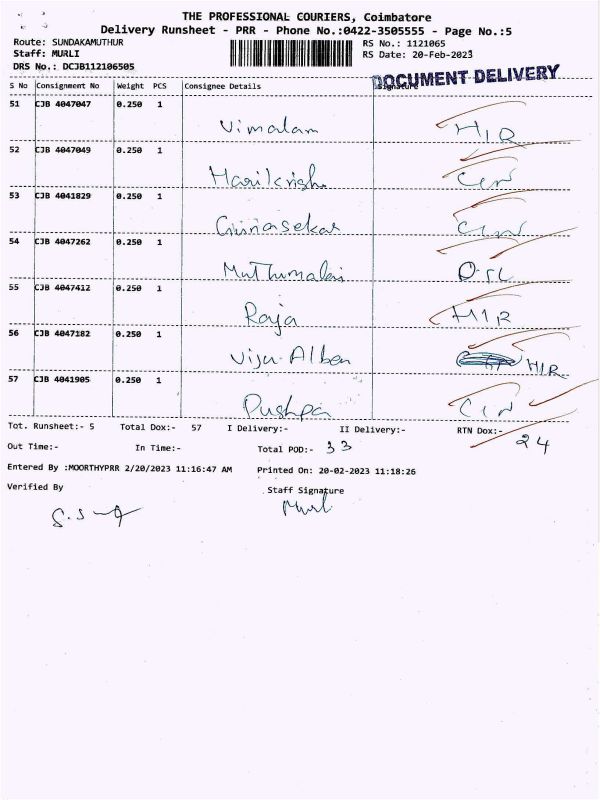 THE PROFESSIONAL COURIERS, Coimbatore
Delivery Runsheet - PRR - Phone No.:0422-3505555 - Page No.:5
Route: SUNDAKAMUTHUR
RS No.: 1121065
Staff: MURLI
RS Date: 20-Feb-2023
DRS No.: DCJB112106505
DOCUMENT DELIVERY
S No Consignment No Weight PCS Consignee Details Signature
51 CJB 4047047 0.250 1
Vimalam HIR
52 CJB 4047049 0.250 1
Harikrish
53 CJB 4041829 0.250 1
Gunasekar
54 CJB 4047262 0.250 1
Muthumalai
55 CJB 4047412 0.250 1
Raja HIR
56 CJB 4047182 0.250 1
HIR
57 CJB 4041905 0.250 1
Pushpa
Tot. Runsheet:- 5 Total Dox:- 57 I Delivery:- II Delivery:- RTN Dox:- 24
Out Time:- In Time:- Total POD:- 33
Entered By :MOORTHYPRR 2/20/2023 11:16:47 AM Printed On: 20-02-2023 11:18:26
Verified By Staff Signature
Murli